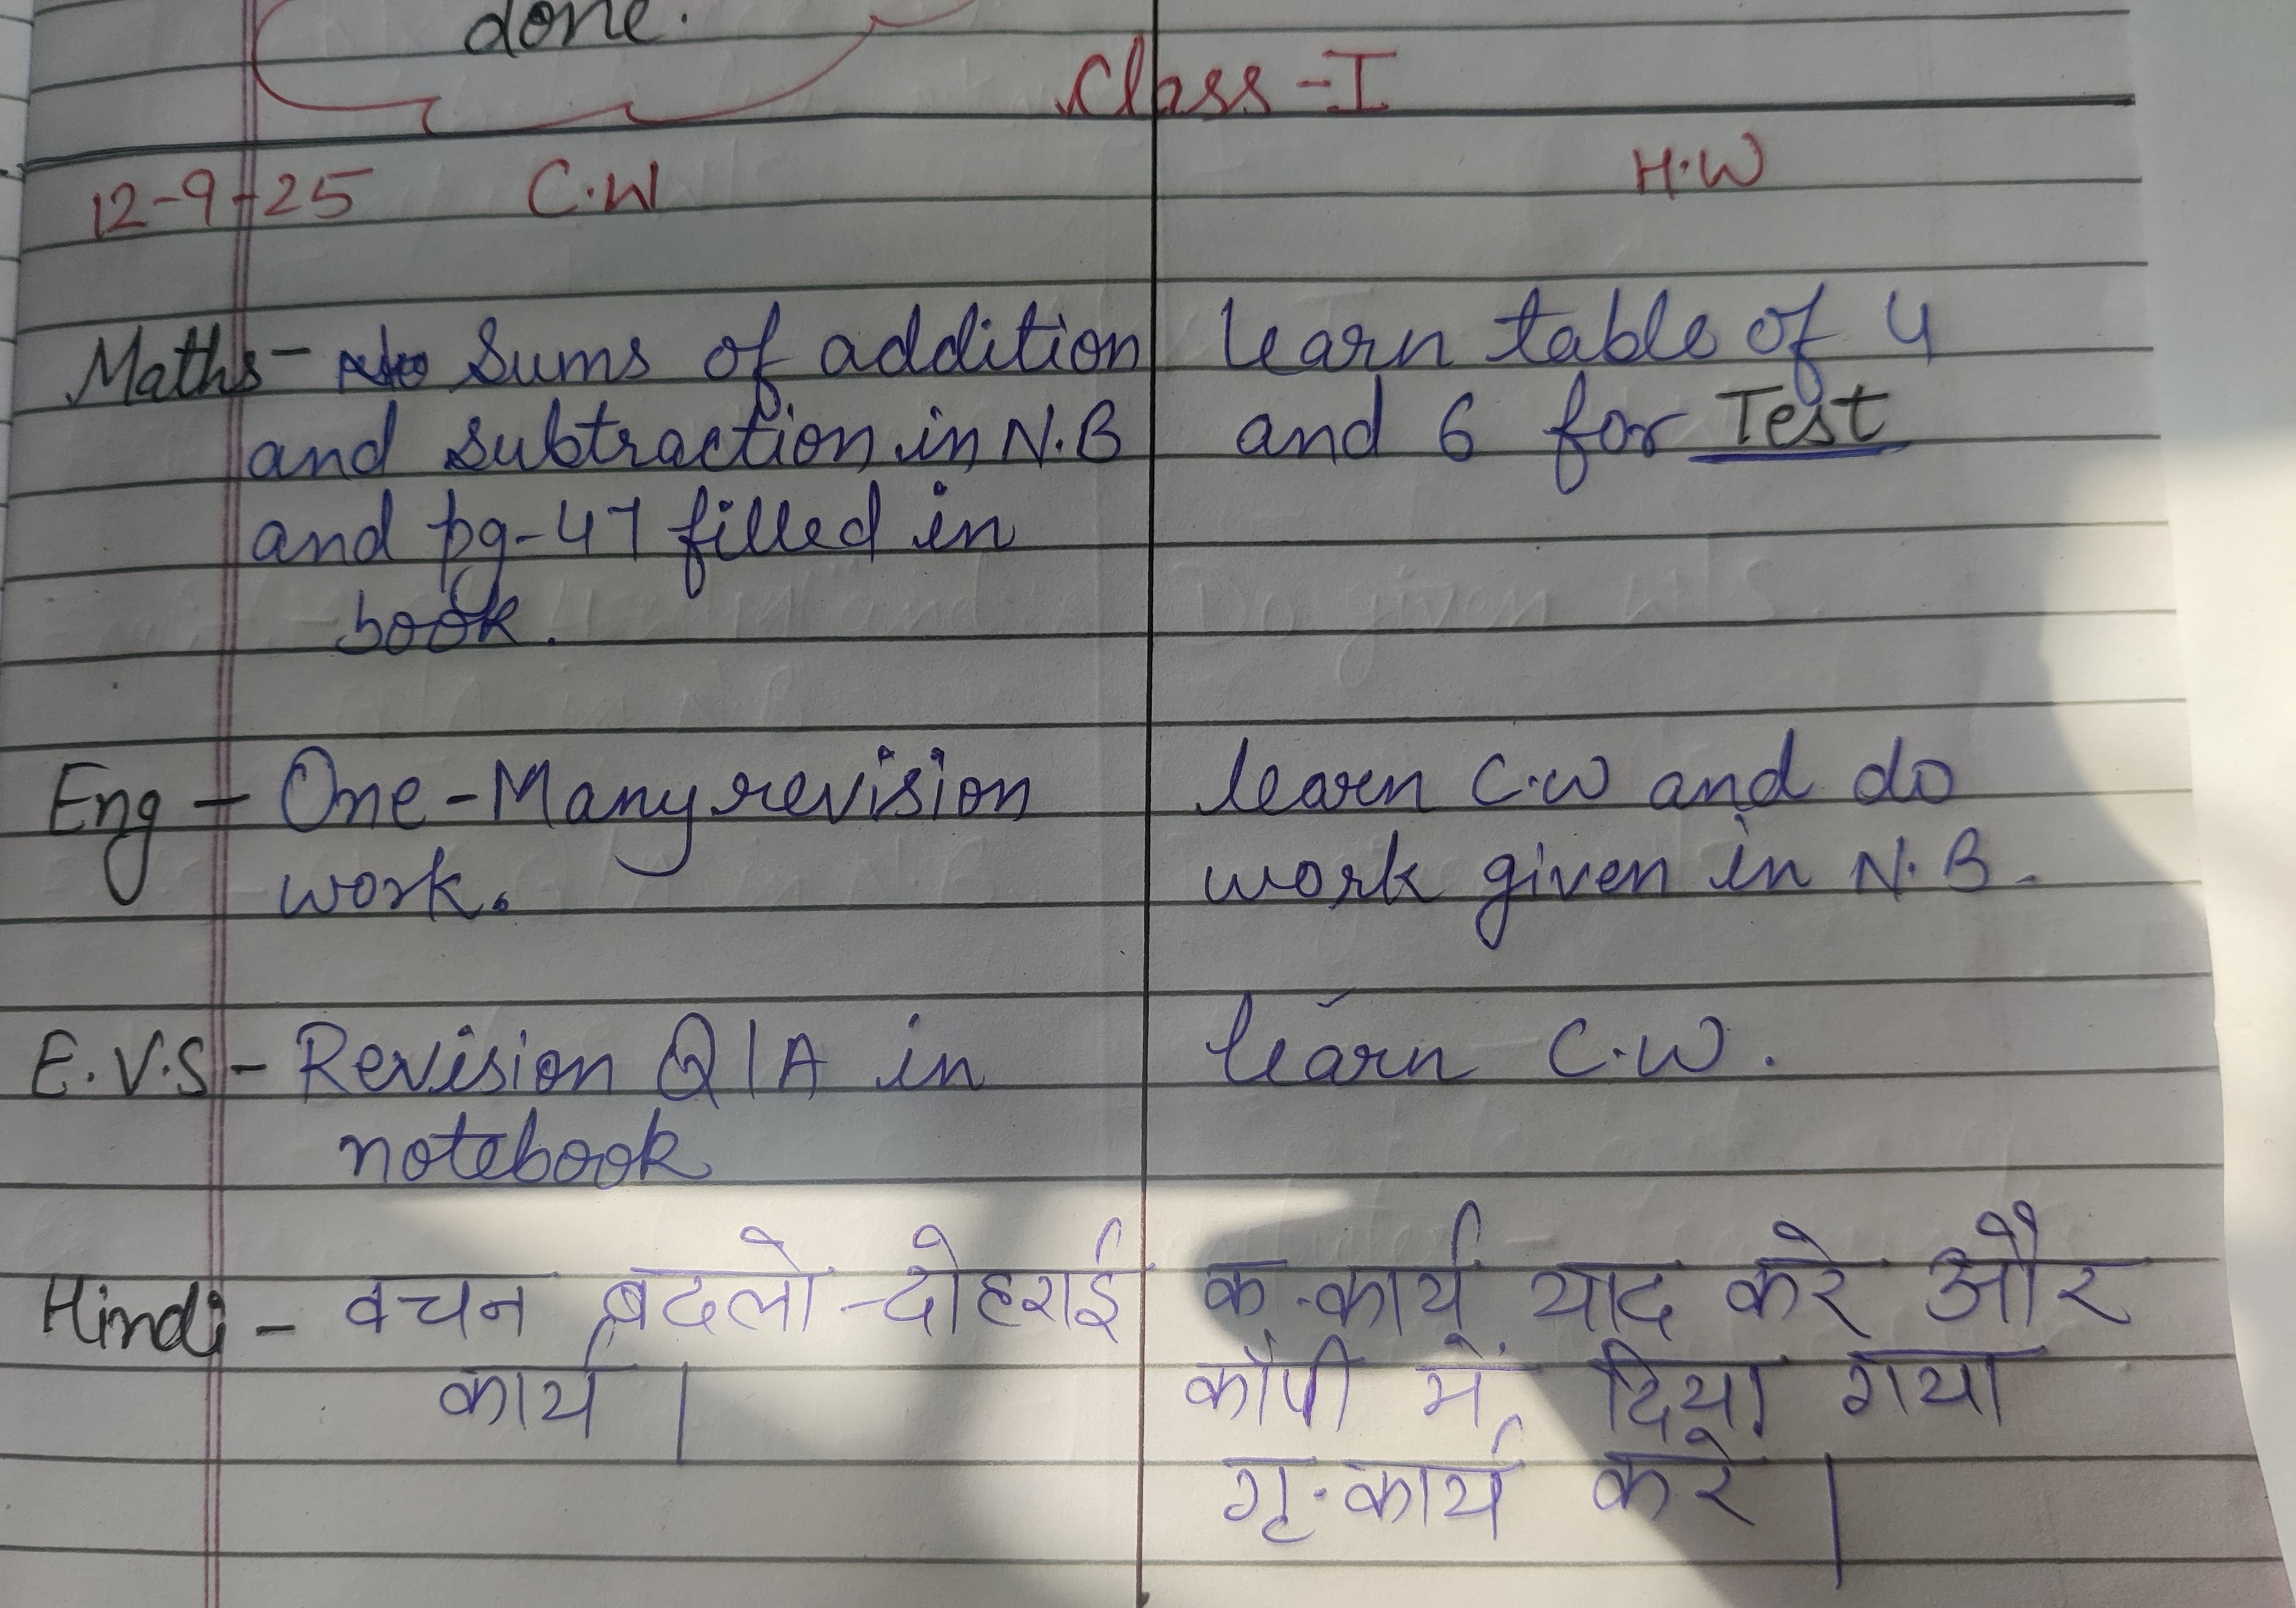 done.
Class - I
12-9-25 C.W H.W
Maths - Sums of addition
and subtraction in N.B
and pg-47 filled in
book.
learn table of 4
and 6 for Test
Eng - One-Many revision
work.
learn C.W and do
work given in N.B.
E.V.S - Revision Q/A in
notebook
learn C.W.
Hindi - वचन बदलो - दोहराई
कार्य ।
क.कार्य याद करे और
कॉपी में दिया गया
गृ.कार्य करे ।